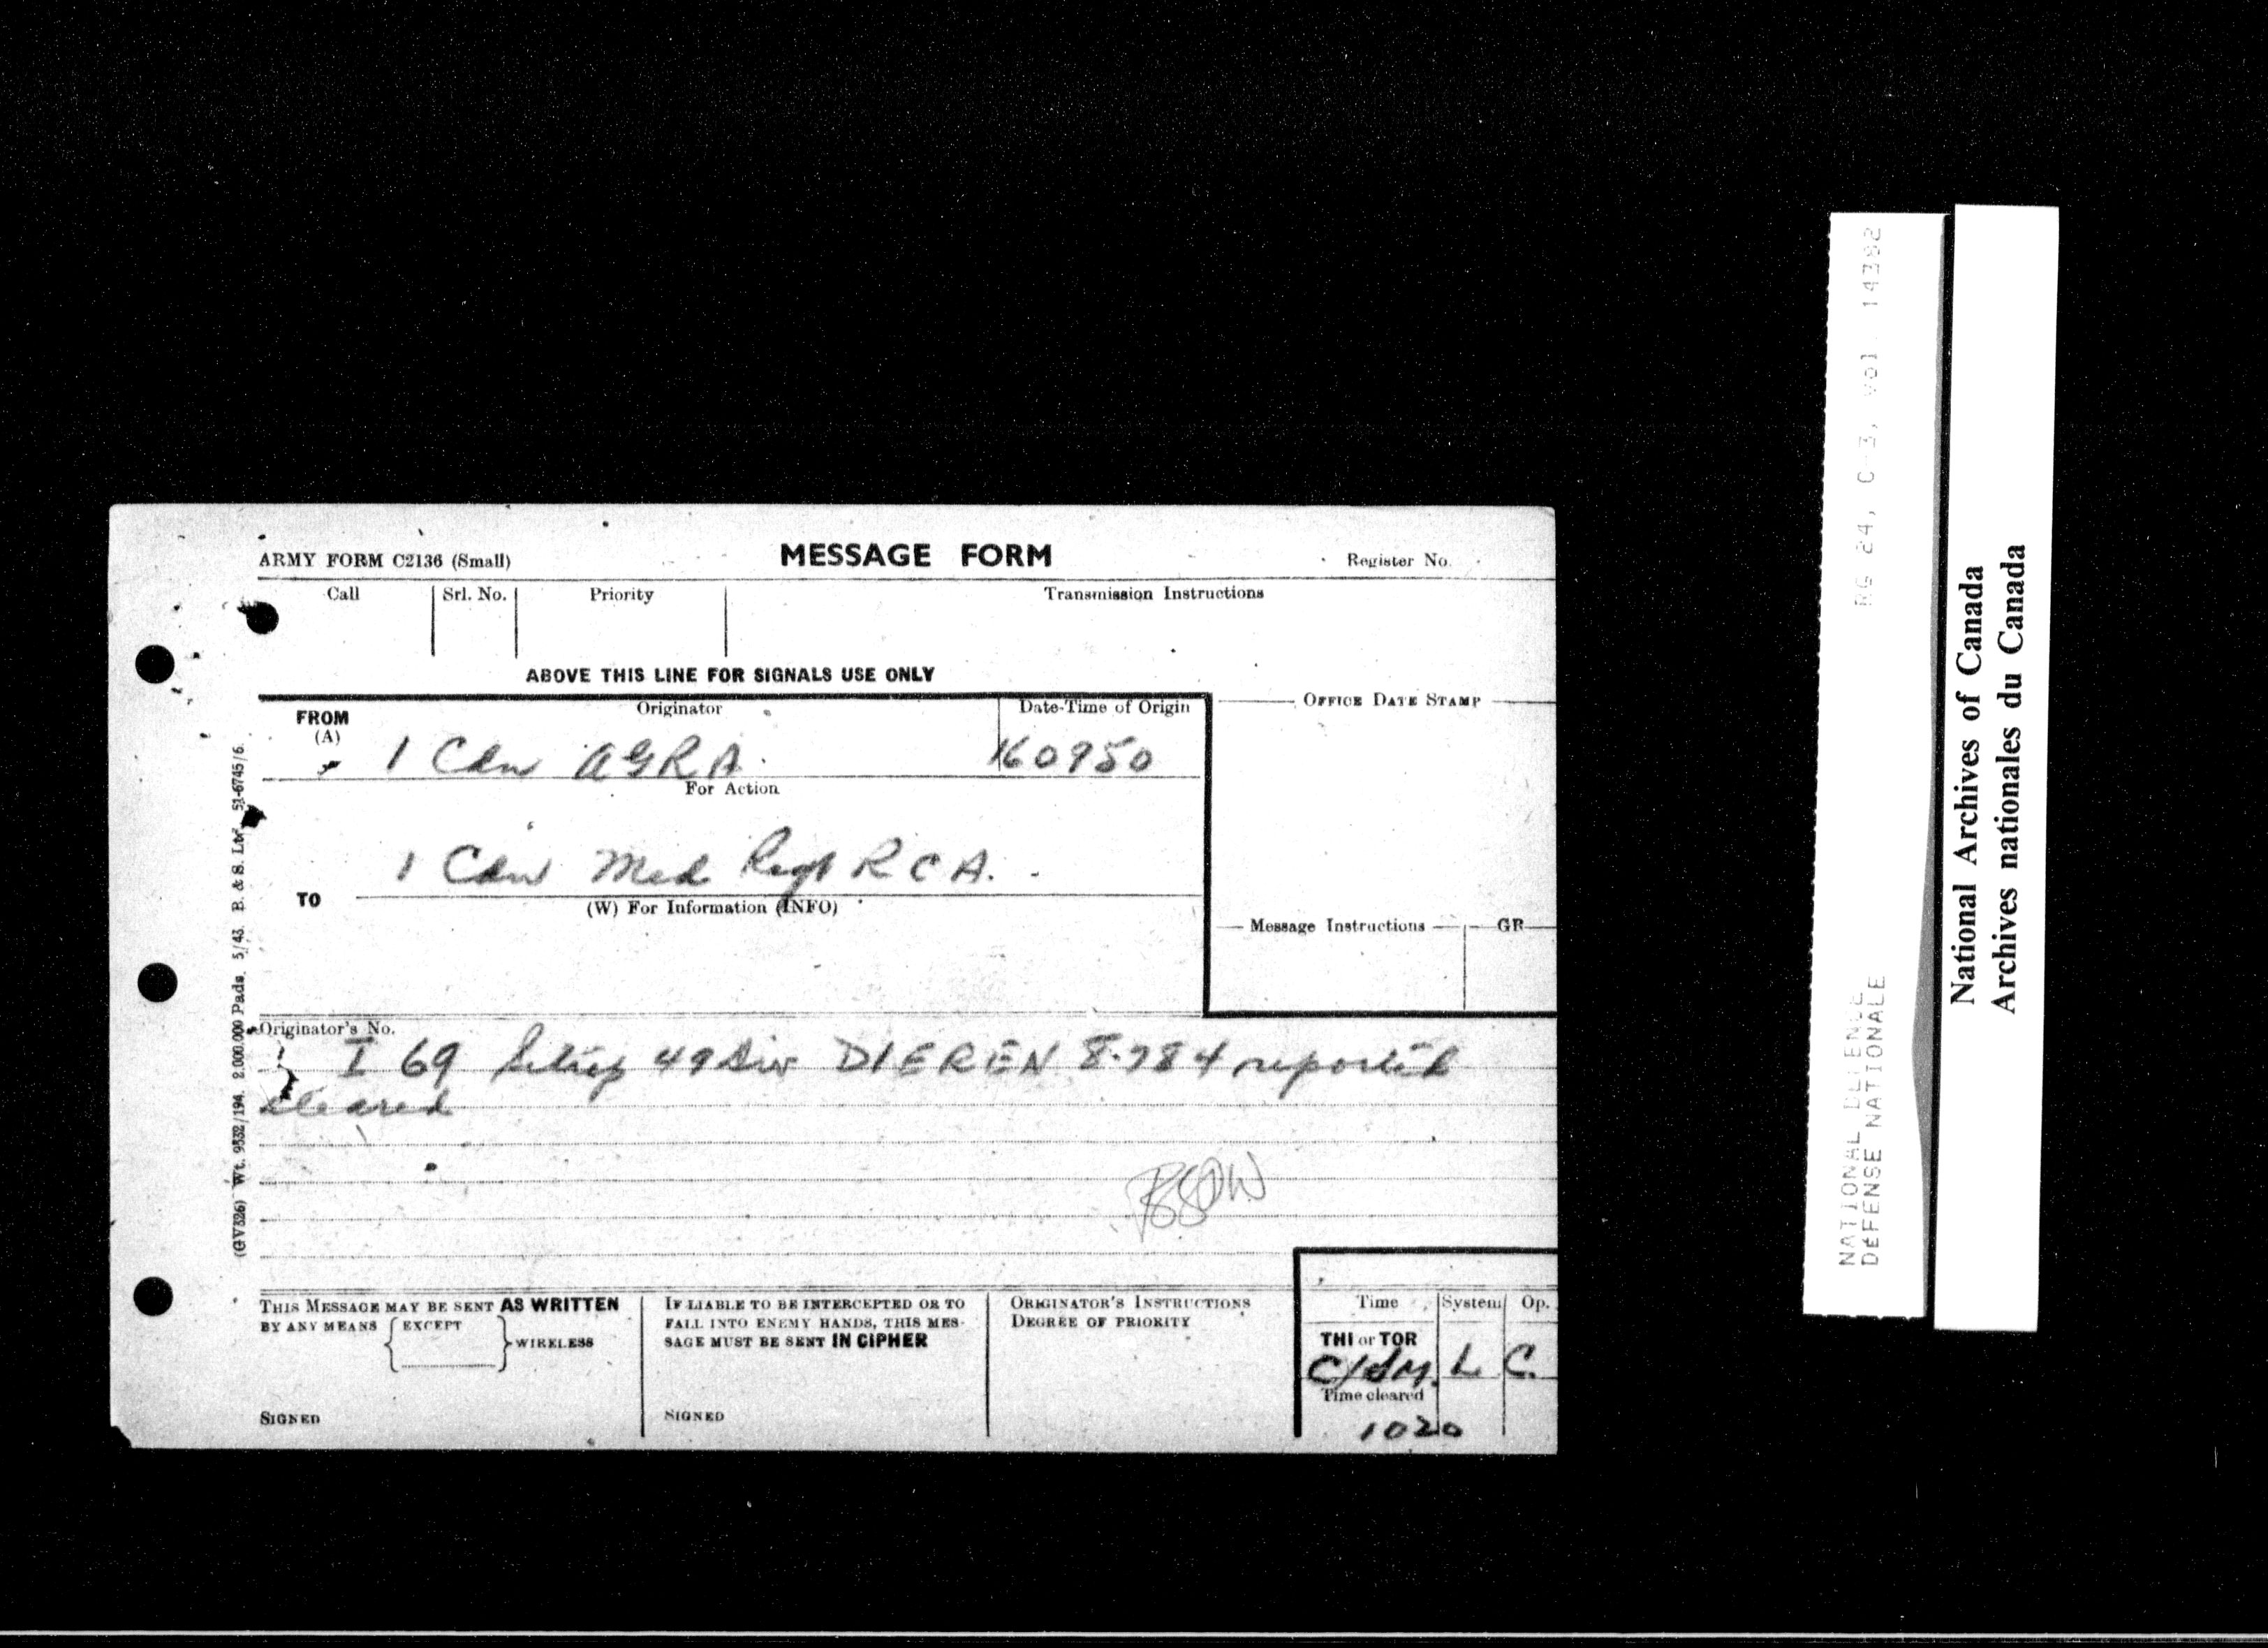 ARMY FORM C2136 (Small)
MESSAGE FORM
Register No.
Call
Srl. No.
Priority
Transmission Instructions
ABOVE THIS LINE FOR SIGNALS USE ONLY
FROM
(A)
Originator
Date-Time of Origin
OFFICE DATE STAMP
1 Cdn AGRA.
160950
For Action
1 Cdn Med Regt RCA.
TO
(W) For Information (INFO)
Message Instructions
GR
Originator's No.
I 69 49 Div DIEREN 8784 reported
cleared
THIS MESSAGE MAY BE SENT AS WRITTEN
BY ANY MEANS EXCEPT WIRELESS
SIGNED
IF LIABLE TO BE INTERCEPTED OR TO
FALL INTO ENEMY HANDS, THIS MES-
SAGE MUST BE SENT IN CIPHER
SIGNED
ORIGINATOR'S INSTRUCTIONS
DEGREE OF PRIORITY
Time
System
Op.
THI or TOR
L
C.
Time cleared
1020
(GV326) Wt. 9332/194. 2,000,000 Pads. 5/43. B. & S. Ltd. 51-6745/6.
NATIONAL DEFENCE
DÉFENSE NATIONALE
RG 24, C-3, vol. 14382
National Archives of Canada
Archives nationales du Canada